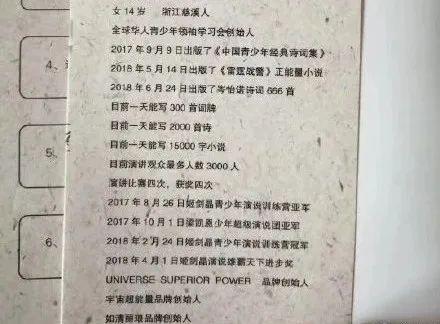 女 14 岁 浙江慈溪人
全球华人青少年领袖学习会创始人
2017 年 9 月 9 日出版了《中国青少年经典诗词集》
2018 年 5 月 14 日出版了《雷霆战警》正能量小说
2018 年 6 月 24 日出版了岑怡诺诗词 656 首
目前一天能写 300 首词牌
目前一天能写 2000 首诗
目前一天能写 15000 字小说
目前演讲观众最多人数 3000 人
演讲比赛四次，获奖四次
2017 年 8 月 26 日姬剑晶青少年演说训练营亚军
2017 年 10 月 1 日梁凯恩青少年超级演说团亚军
2018 年 2 月 24 日姬剑晶青少年演说训练营冠军
2018 年 4 月 1 日姬剑晶演说雄霸天下进步奖
UNIVERSE SUPERIOR POWER 品牌创始人
宇宙超能量品牌创始人
如清丽琅品牌创始人
4、
5、
6、